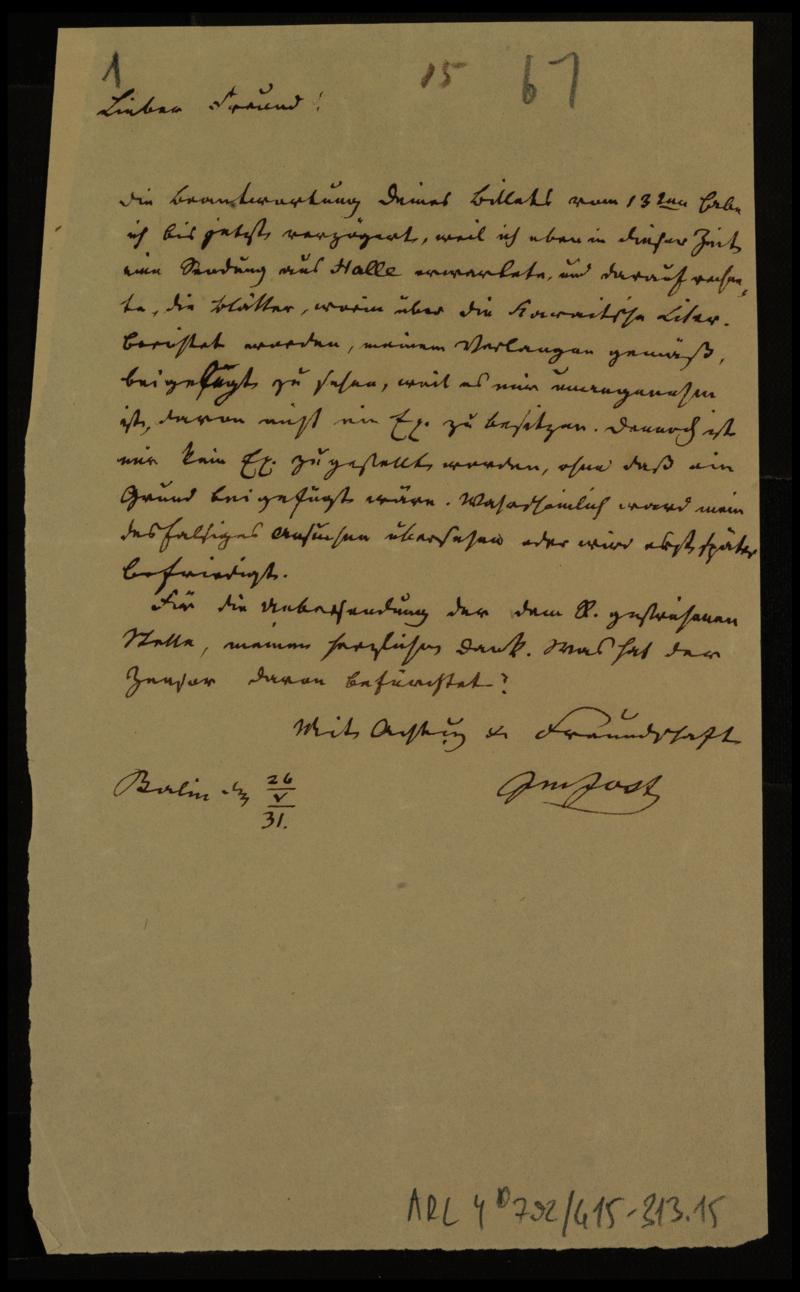 1 15 67
Lieber Freund!
Die Beantwortung Deines Billets vom 13ten habe
ich bis jetzt verzögert, weil ich eben in dieser Zeit
eine Sendung aus Halle erwartete, und darauf rechne-
te, die Blätter, worin über die Karaitische Liter.
berichtet worden, meinem Verlangen gemäß,
beigefügt zu sehen, weil es mir unangenehm
ist, davon nicht ein Ex. zu besitzen. Dennoch ist
mir kein Ex. zugestellt worden, ohne daß ein
Grund beigefügt wäre. Wahrscheinlich ward mein
desfalsiges Ansuchen übersehen oder wird erst später
befriedigt.
Für die Uebersendung der dem R. gestrichenen
Stelle, meinen herzlichen Dank. Was hat der
Zensor davon befürchtet?
Mit Achtung & Freundschaft
Berlin den 26/V 31.
JmJost
ARC 4° 792/G15-313.15